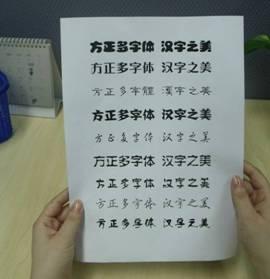 方正多字体 汉字之美
方正多字体 汉字之美
方正多字體 漢字之美
方正多字体 汉字之美
方正多字体 汉字之美
方正多字体 汉字之美
方正多字体 汉字之美
方正多字体 汉字之美
方正多字体 汉字之美